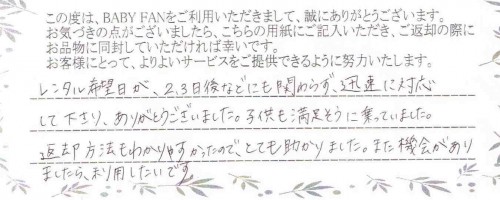 この度は、BABY FANをご利用いただきまして、誠にありがとうございます。
お気づきの点がございましたら、こちらの用紙にご記入いただき、ご返却の際に
お品物に同封していただければ幸いです。
お客様にとって、よりよいサービスをご提供できるように努力いたします。
レンタル希望日が、2,3日後などにも関わらず、迅速に対応
して下さり、ありがとうございました。子供も満足そうに乗っていました。
返却方法もわかりやすかったので、とても助かりました。また機会があり
ましたら、利用したいです。